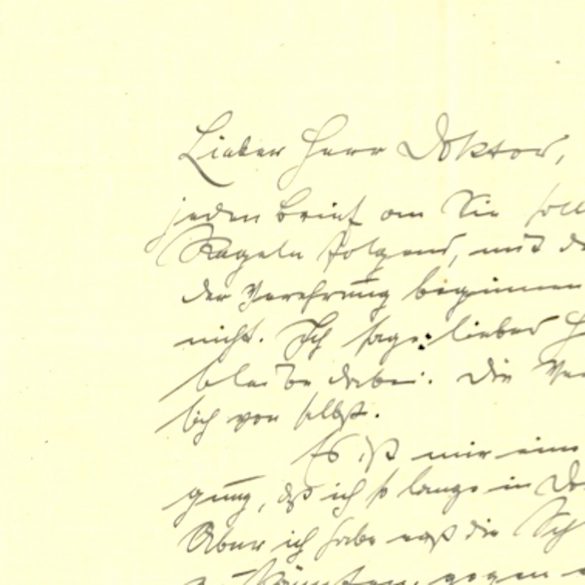 Lieber Herr Doktor,
jeden Brief an Sie soll
Regeln folgend, mit de
der Verehrung beginnen
nicht. Ich sage: lieber H
bleibe dabei. Die Ver
sich von selbst.
Es ist mir eine
gung, daß ich so lange in
Aber ich habe erst die Sch